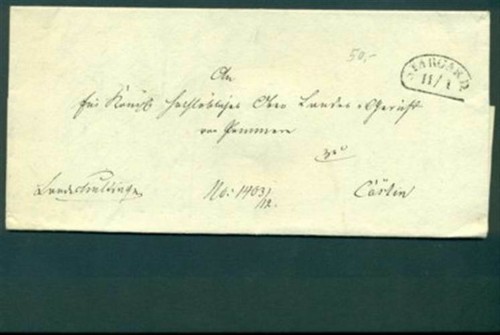 50,-
STARGARD
11/1
An
Ein Königl. Hochlöbliches Ober Landes-Gericht
von Pommern
zu
No: 1403/
12.
Cöslin